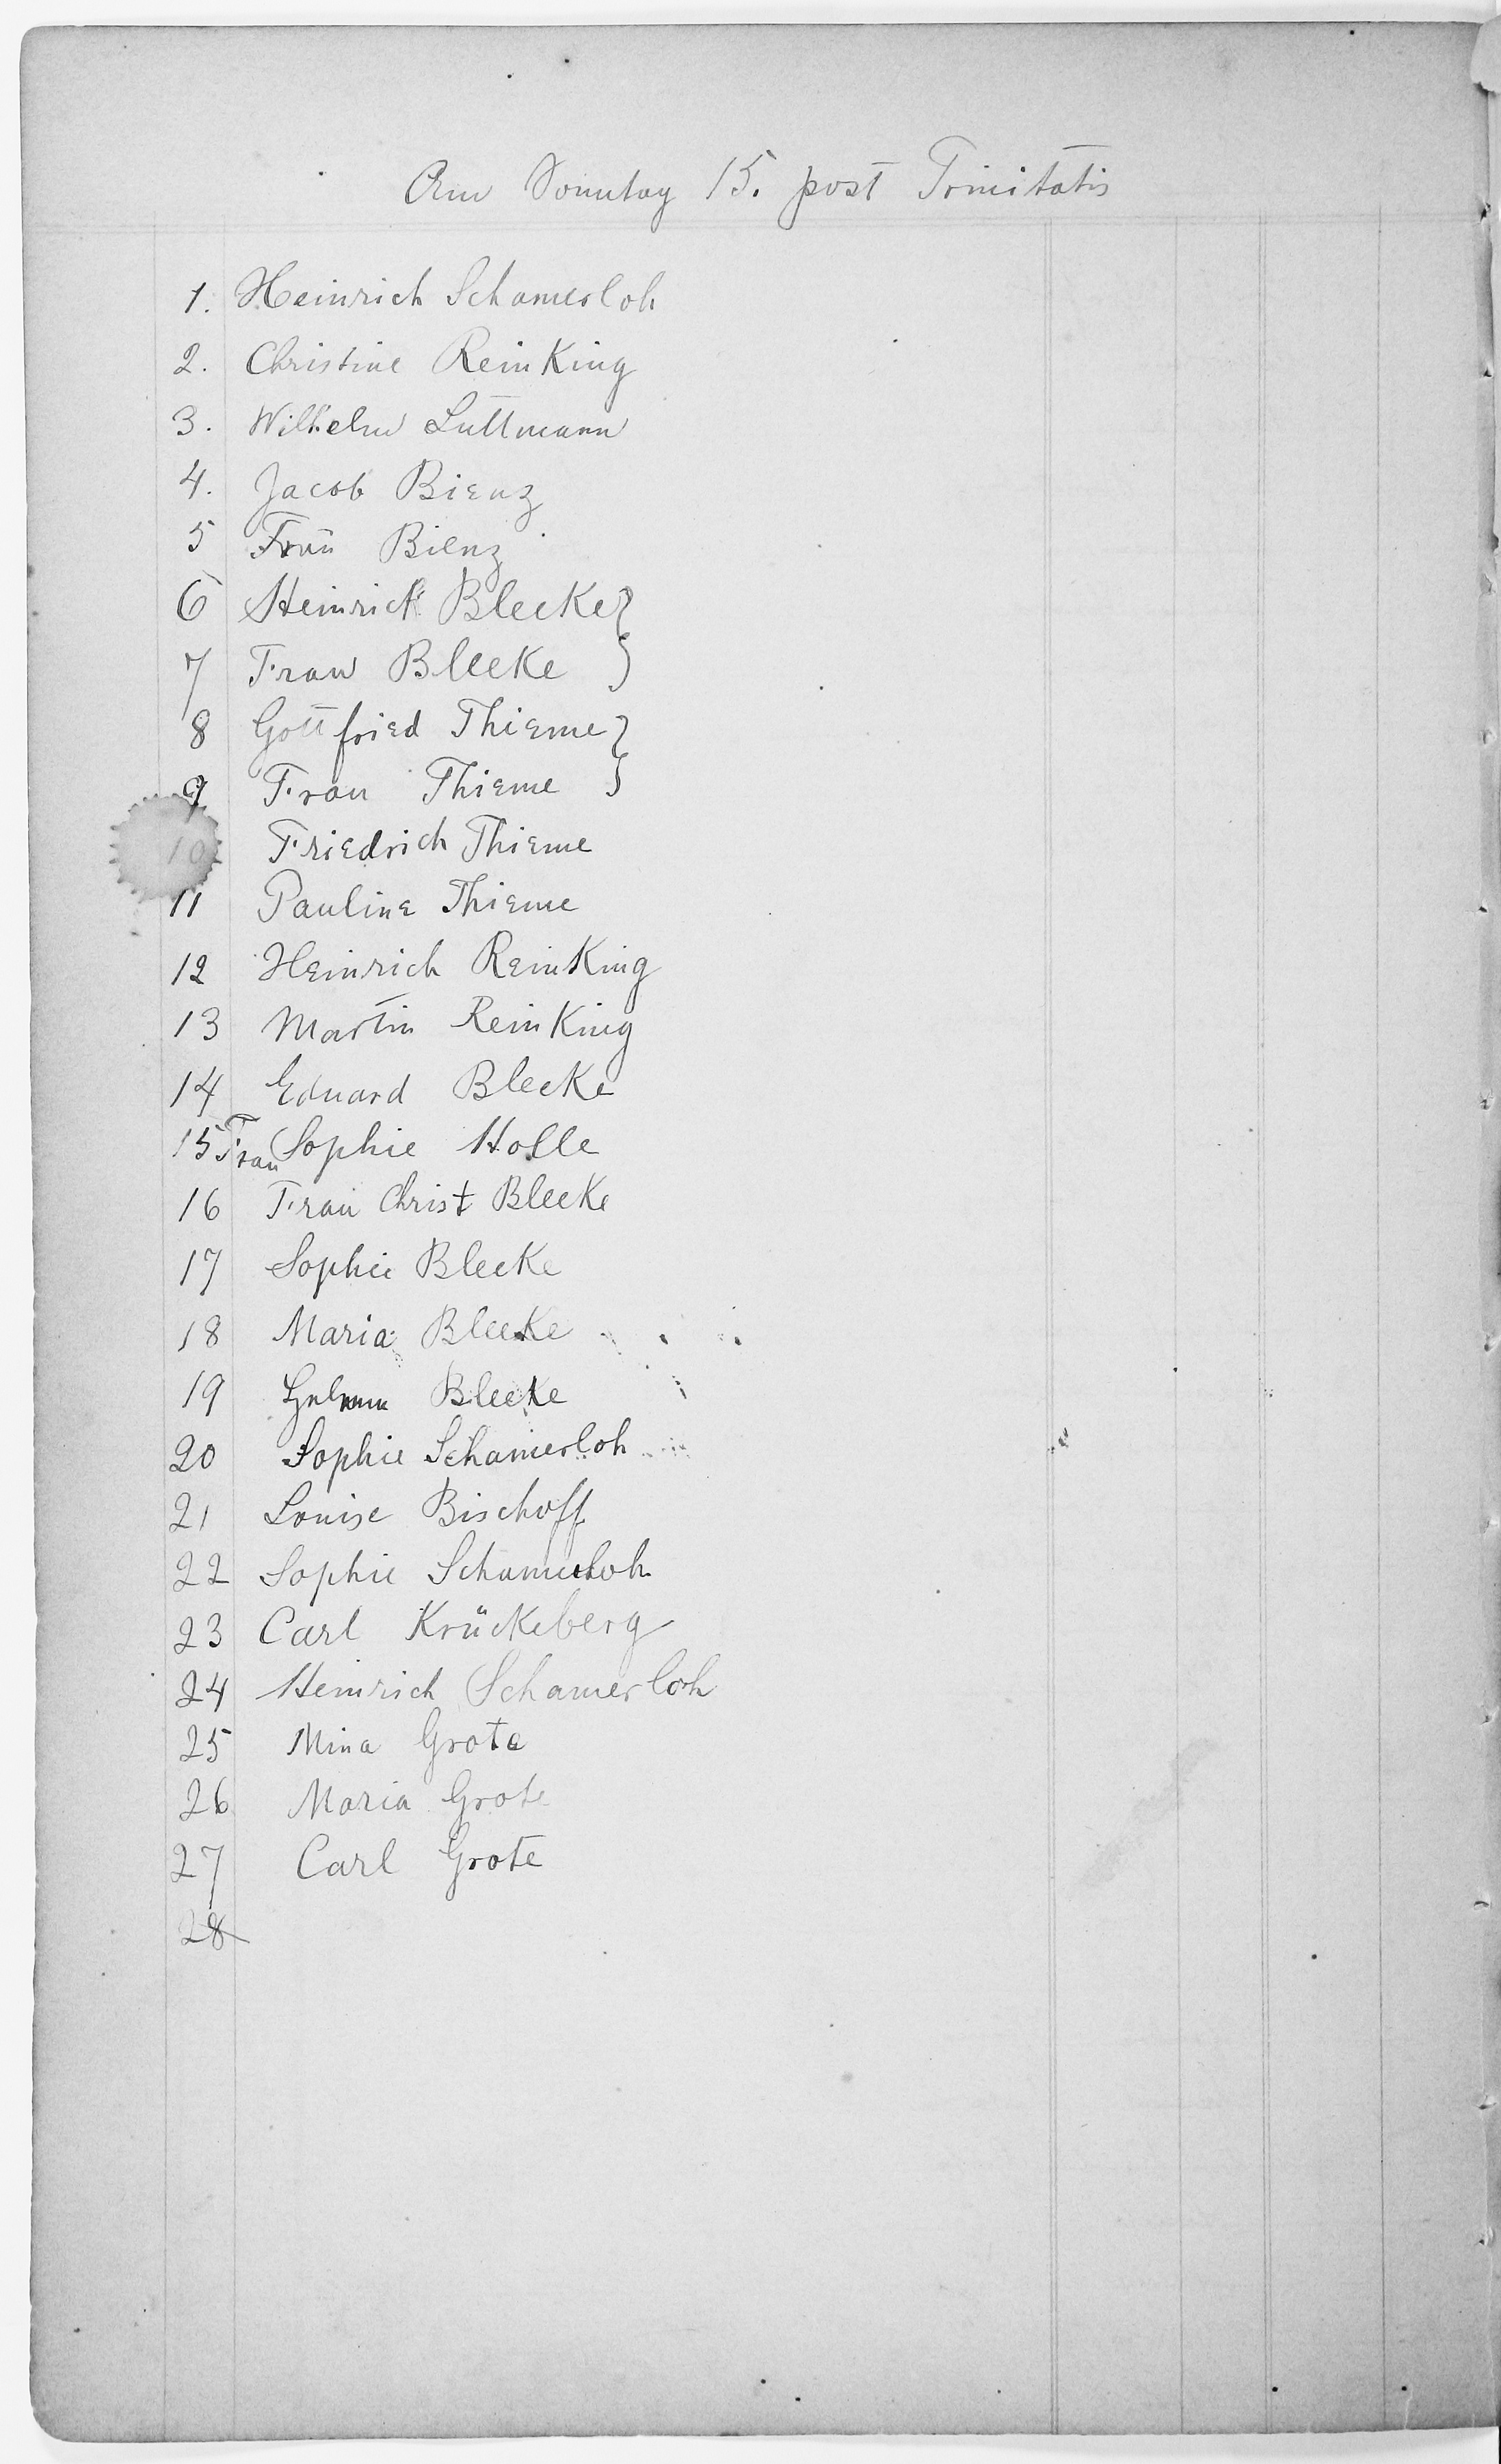 Am Sonntag 15. post Trinitatis
1. Heinrich Schamerloh
2. Christine Reinking
3. Wilhelm Luttmann
4. Jacob Bienz
5 Frau Bienz
6 Heinrich Blecke }
7 Frau Blecke }
8 Gottfried Thieme }
9 Frau Thieme }
10 Friedrich Thieme
11 Pauline Thieme
12 Heinrich Reinking
13 Martin Reinking
14 Eduard Blecke
15 Frau Sophie Holle
16 Frau Christ Blecke
17 Sophie Blecke
18 Maria Blecke
19 Blecke
20 Sophie Schamerloh
21 Louise Bischoff
22 Sophie Schamerloh
23 Carl Krückeberg
24 Heinrich Schamerloh
25 Mina Grote
26 Maria Grote
27 Carl Grote
28